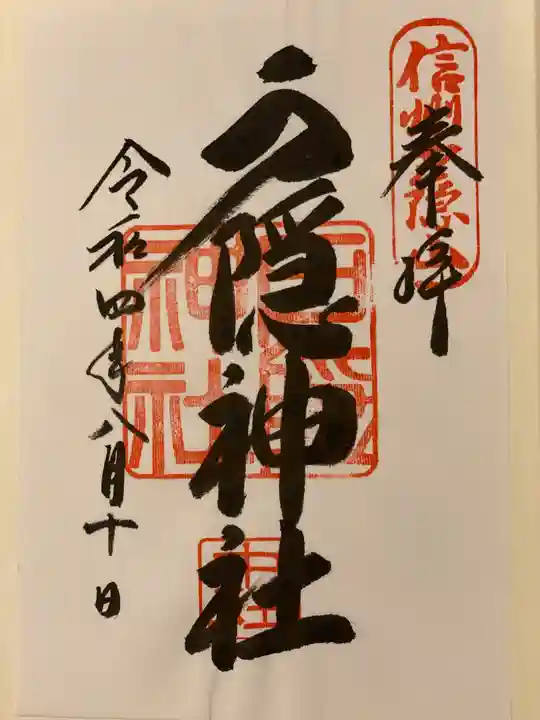 奉拝
戸隠神社
令和四年八月十日
戸隠
神社
中社